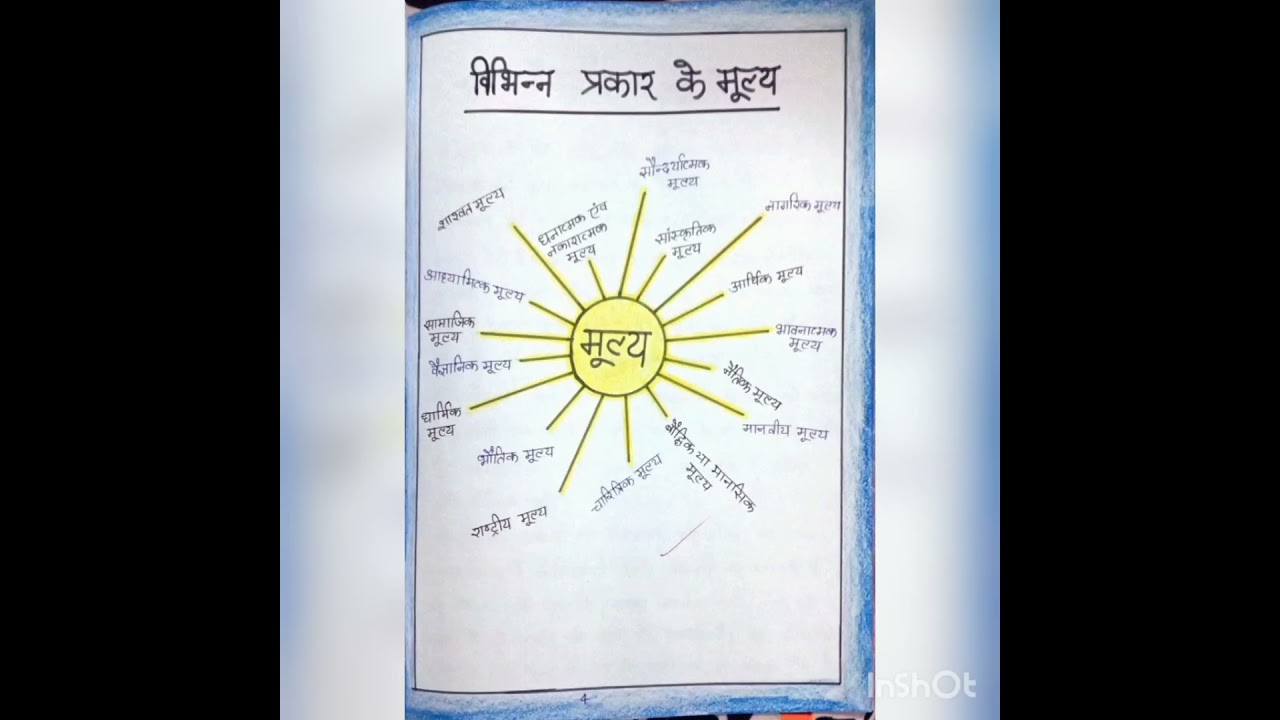 विभिन्न प्रकार के मूल्य
सौन्दर्यात्मक
मूल्य
नागरिक मूल्य
शाश्वत मूल्य
धनात्मक एंव
नकारात्मक
मूल्य
सांस्कृतिक
मूल्य
आर्थिक मूल्य
आध्यात्मिक मूल्य
सामाजिक
मूल्य
मूल्य
भावनात्मक
मूल्य
वैज्ञानिक मूल्य
नैतिक मूल्य
धार्मिक
मूल्य
मानवीय मूल्य
भौतिक मूल्य
बौद्धिक या मानसिक
मूल्य
चारित्रिक मूल्य
राष्ट्रीय मूल्य
4
InShOt